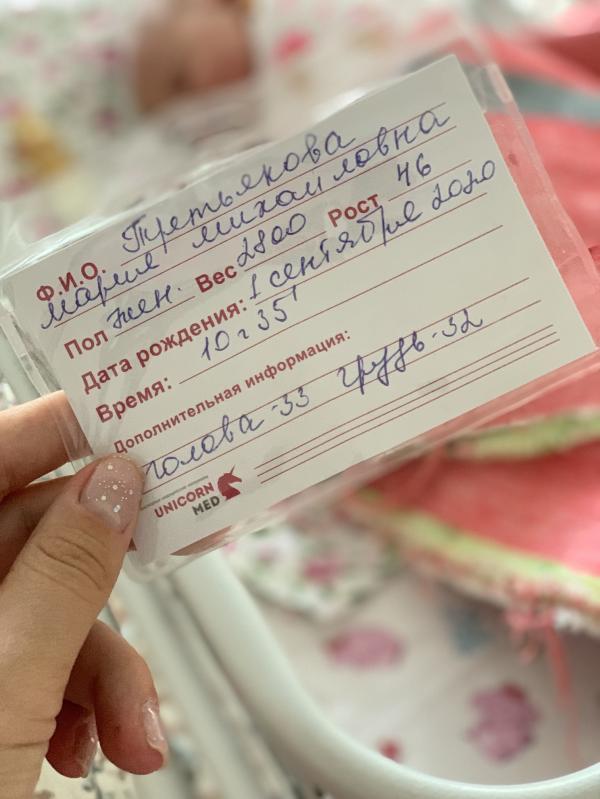 Ф.И.О. Третьякова
Мария Михайловна
Пол жен. Вес 2800 Рост 46
Дата рождения: 1 сентября 2020
Время: 10 ч 35'
Дополнительная информация:
голова - 33 грудь - 32
UNICORN
MED